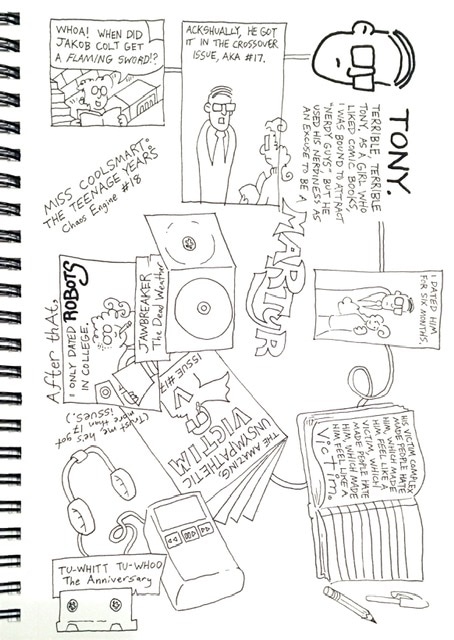 WHOA! WHEN DID
JAKOB COLT GET
A FLAMING SWORD!?
ACKSHUALLY, HE GOT
IT IN THE CROSSOVER
ISSUE, AKA #17.
MISS COOLSMART:
THE TEENAGE YEARS
Chaos Engine #18
TONY.
TERRIBLE TERRIBLE
TONY. AS A GIRL WHO
LIKED COMIC BOOKS,
I WAS BOUND TO ATTRACT
"NERDY GUYS" BUT HE
USED HIS NERDINESS AS
AN EXCUSE TO BE A
MARTYR
I DATED HIM
FOR SIX MONTHS.
HIS VICTIM COMPLEX
MADE PEOPLE HATE
HIM, WHICH MADE
HIM FEEL LIKE A
VICTIM, WHICH
MADE PEOPLE HATE
HIM, WHICH MADE
HIM FEEL LIKE A
Victim.
THE AMAZING,
UNSYMPATHETIC
VICTIM
ISSUE #17
(Trust me, he's got
more than 17
issues.)
After thAt,
I ONLY DATED ROBOTS
IN COLLEGE.
JAWBREAKER
The Dead Weather
TU-WHITT TU-WHOO
The Anniversary